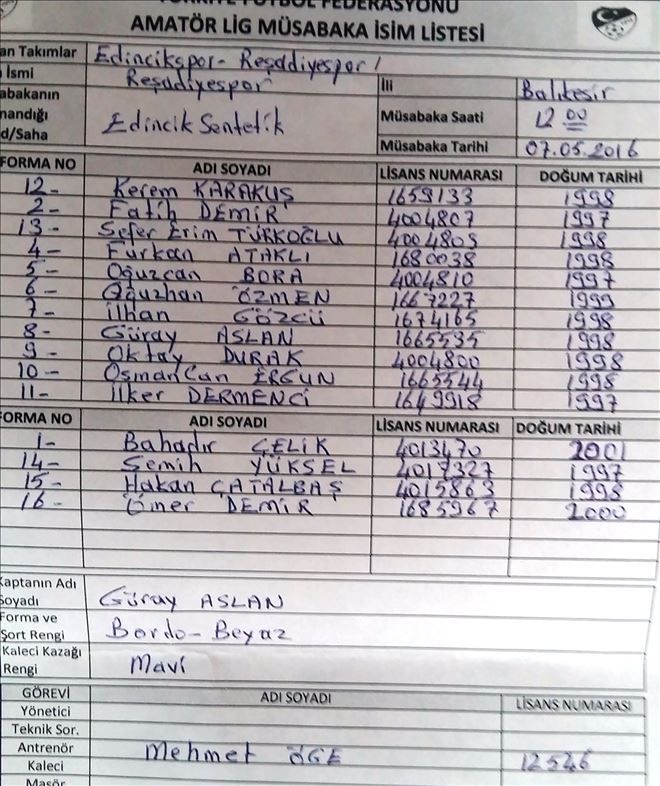 TÜRKİYE FUTBOL FEDERASYONU
AMATÖR LİG MÜSABAKA İSİM LİSTESİ
an Takımlar Edincikspor- Reşadiyespor
İsmi Reşadiyespor İli Balıkesir
abakanın
nandığı Edincik Sentetik Müsabaka Saati 12 00
d/Saha Müsabaka Tarihi 07.05.2016
FORMA NO ADI SOYADI LİSANS NUMARASI DOĞUM TARİHİ
12- Kerem KARAKUŞ 1659133 1998
2- Fatih DEMİR 4004807 1997
13- Sefer Erim TÜRKOĞLU 4004809 1998
4- Furkan ATAKLI 1680038 1998
5- Oğuzcan BORA 4004810 1997
6- Oğuzhan ÖZMEN 1667227 1999
7- İlhan GÖZCÜ 1674165 1998
8- Güray ASLAN 1665535 1998
9- Oktay DURAK 4004800 1998
10- OsmanCan ERGUN 1665544 1998
11- İlker DERMENCİ 1649918 1997
FORMA NO ADI SOYADI LİSANS NUMARASI DOĞUM TARİHİ
1- Bahadır ÇELİK 4013470 2001
14- Semih YÜKSEL 4017327 1997
15- Hakan ÇATALBAŞ 4015863 1998
16- Ömer DEMİR 1685967 2000
Kaptanın Adı
Soyadı Güray ASLAN
Forma ve
Şort Rengi Bordo-Beyaz
Kaleci Kazağı
Rengi Mavi
GÖREVİ ADI SOYADI LİSANS NUMARASI
Yönetici
Teknik Sor.
Antrenör Mehmet ÖGE 12546
Kaleci
Masör